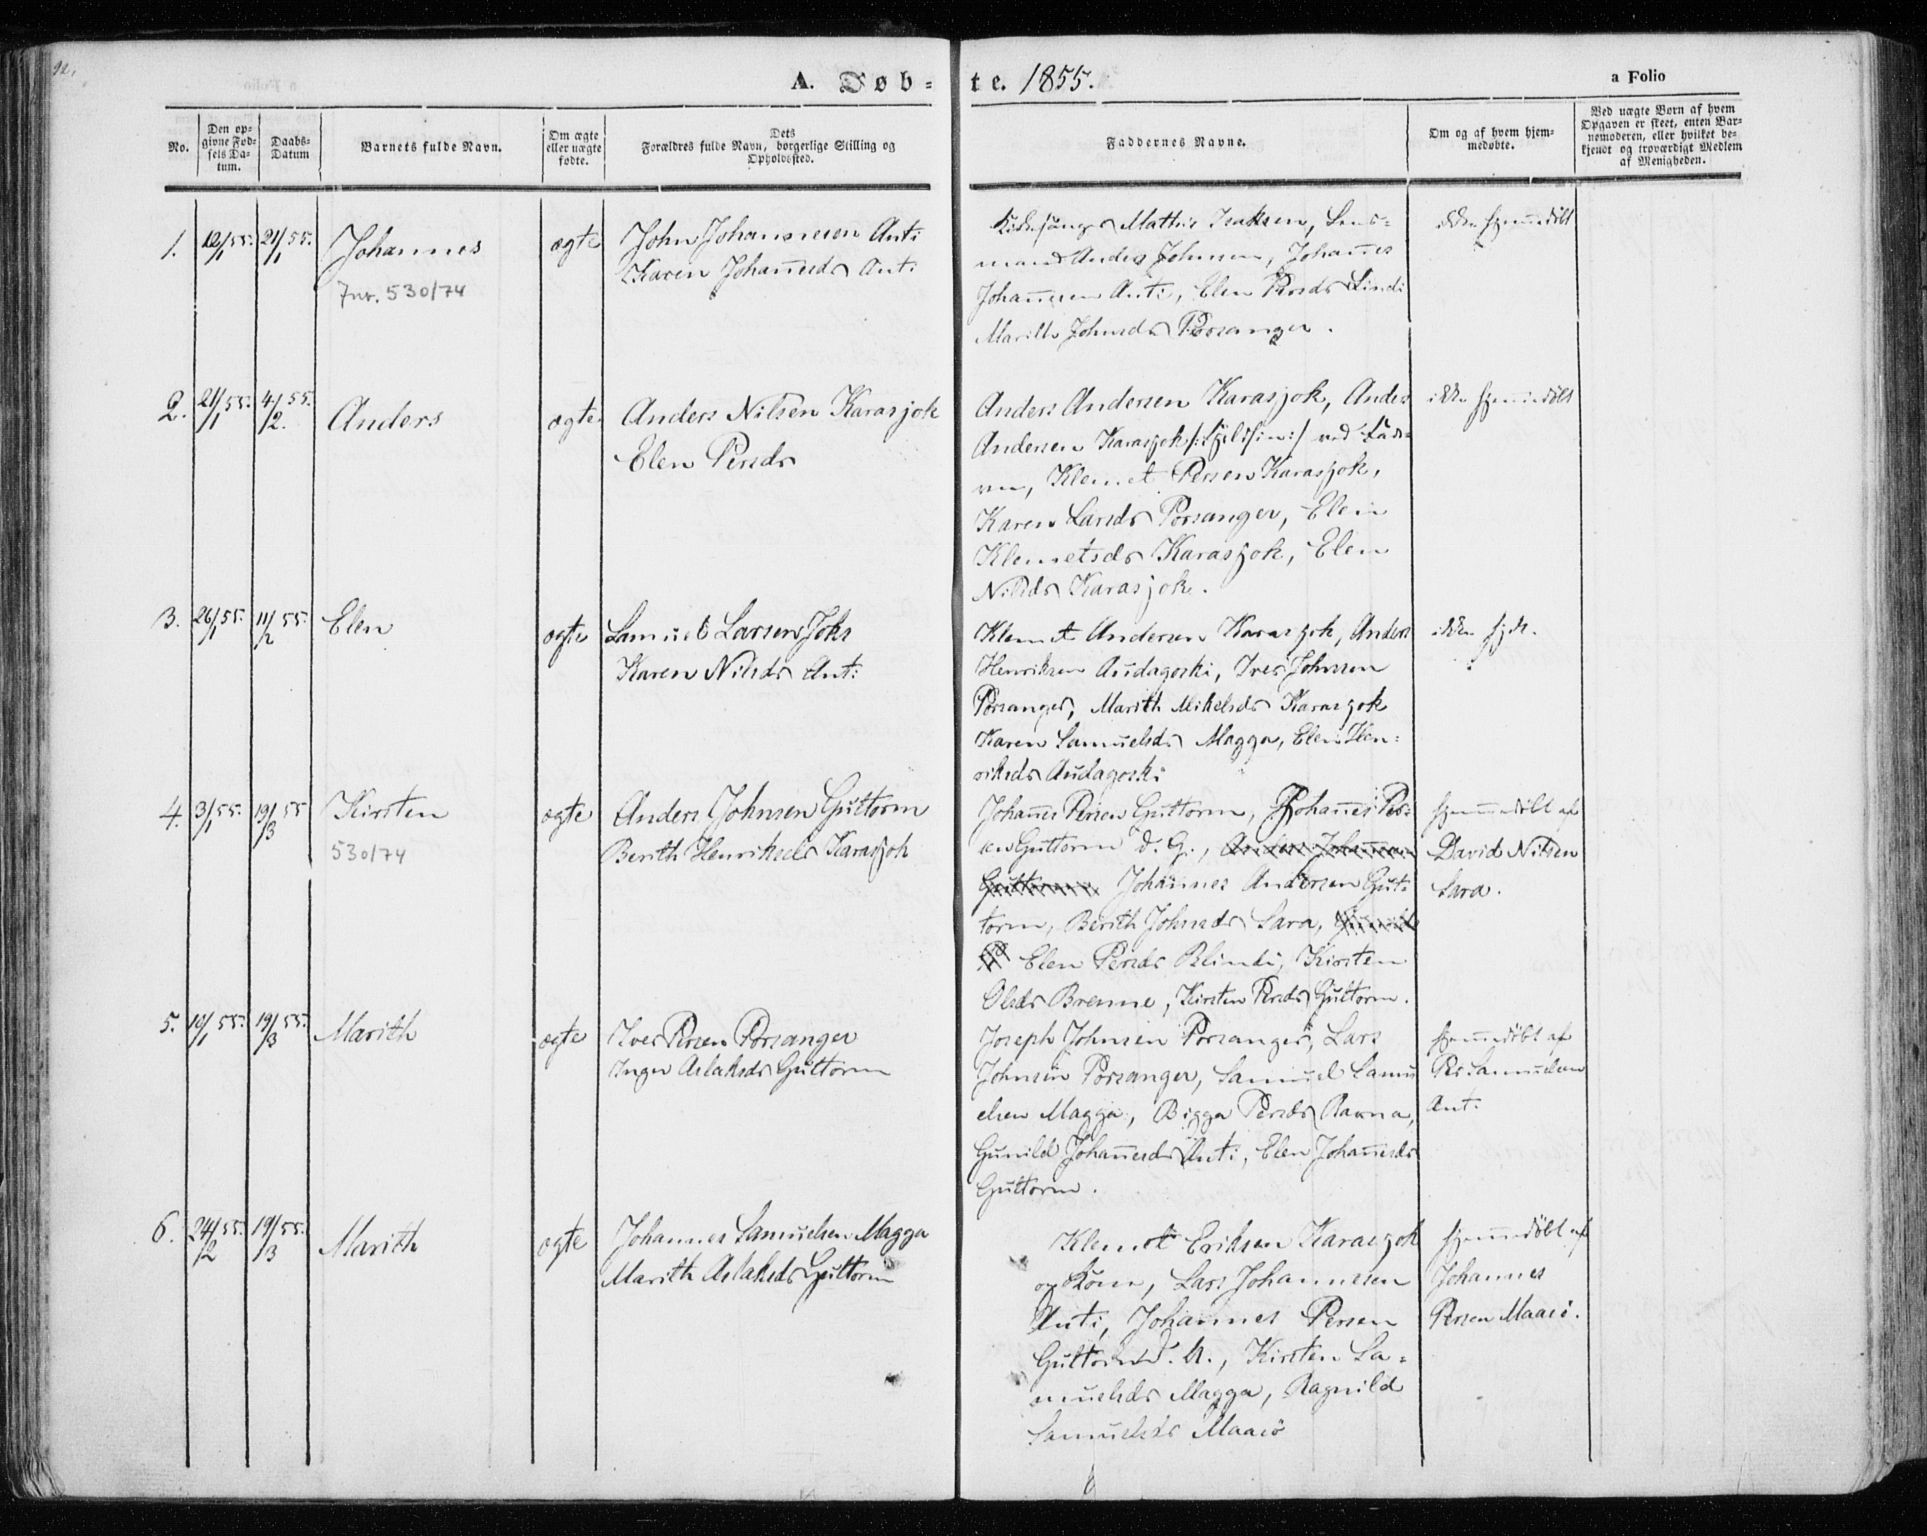 92.
A. Døb-te. 1855.
a Folio
No.
Den op-
givne Fød-
sels Da-
tum.
Daabs-
Datum
Barnets fulde Navn.
Om ægte
eller uægte
fødte.
Dets
Forældres fulde Navn, borgerlige Stilling og
Opholdssted.
Faddernes Navne.
Om og af hvem hjem-
medøbte.
Ved uægte Børn af hvem
Opgaven er skeet, enten Bar-
nemoderen, eller hvilket be-
kjendt og troværdigt Medlem
af Menigheden.
1. 12/1 55. 21/1 55. Johannes
Jnr. 530/74
ægte
John Johannesen Anti
Karen Johan̄esdr Anti
Kirkesanger Mathis Isaksen, Lens-
mand Anders Johnsen, Johan̄es
Johan̄esen Anti, Elen Persdr
Marith Johnsdr Porsanger.
ikke hjem̄edøbt
2. 21/1 55. 4/2. 55. Anders
ægte
Anders Nilsen Karasjok
Elen Persdr
Anders Andersen Karasjok, Anders
Andersen Karasjok ved
Klemet Persen Karasjok,
Karen Larsdr Porsanger, Elen
Klemetsdr Karasjok, Elen
Nilsdr Karasjok.
ikke hjem̄edøbt
3. 26/1 55. 11/2 55. Elen
ægte
Samuel Larsen Joks
Karen Nilsdr Anti
Klemet Andersen Karasjok, Anders
Henriksen Audagoski, Iver Johnsen
Porsanger, Marith Mikelsdr Karasjok
Karen Samuelsdr Magga, Elen Hen-
riksdr Audagoski
ikke hjdt.
4. 3/1 55. 19/3 55 Kirsten
530/74
ægte
Anders Johnsen Guttorm
Berith Henriksdr Karasjok
Johan̄es Persen Guttorm, Johan̄es Pers-
en Guttorm d. G., Anders Johannesen
Guttorm Johannes Andersen Gut-
torm, Berith Johnsdr Sara,
Elen Persdr Blindi, Kirsten
Olsdr Brenne, Kirsten Persdr Guttorm.
hjem̄edøbt af
David Nilsen
Sara.
5. 10/1 55. 19/3 55. Marith
ægte
Iver Persen Porsanger
Inger Aslaksdr Guttorm
Joseph Johnsen Porsanger, Lars
Johnsen Porsanger, Samuel Samu
elsen Magga, Bigga Persdr Ravna,
Gunild Johan̄esdr Anti, Elen Johan̄esdr
Guttorm.
hjem̄edøbt af
Per Samuelsen
Anti
6. 24/2 55. 19/3 55. Marith
ægte
Johannes Samuelsen Magga
Marith Aslaksdr Guttorm
Klemet Eriksen Karasjok
og Kone, Lars Johannesen
Anti, Johannes Persen
Guttorm d. U., Kirsten Sa-
muelsdr Magga, Ragnild
Samuelsdr Maasö
hjem̄edøbt af
Johannes
Persen Maasö.